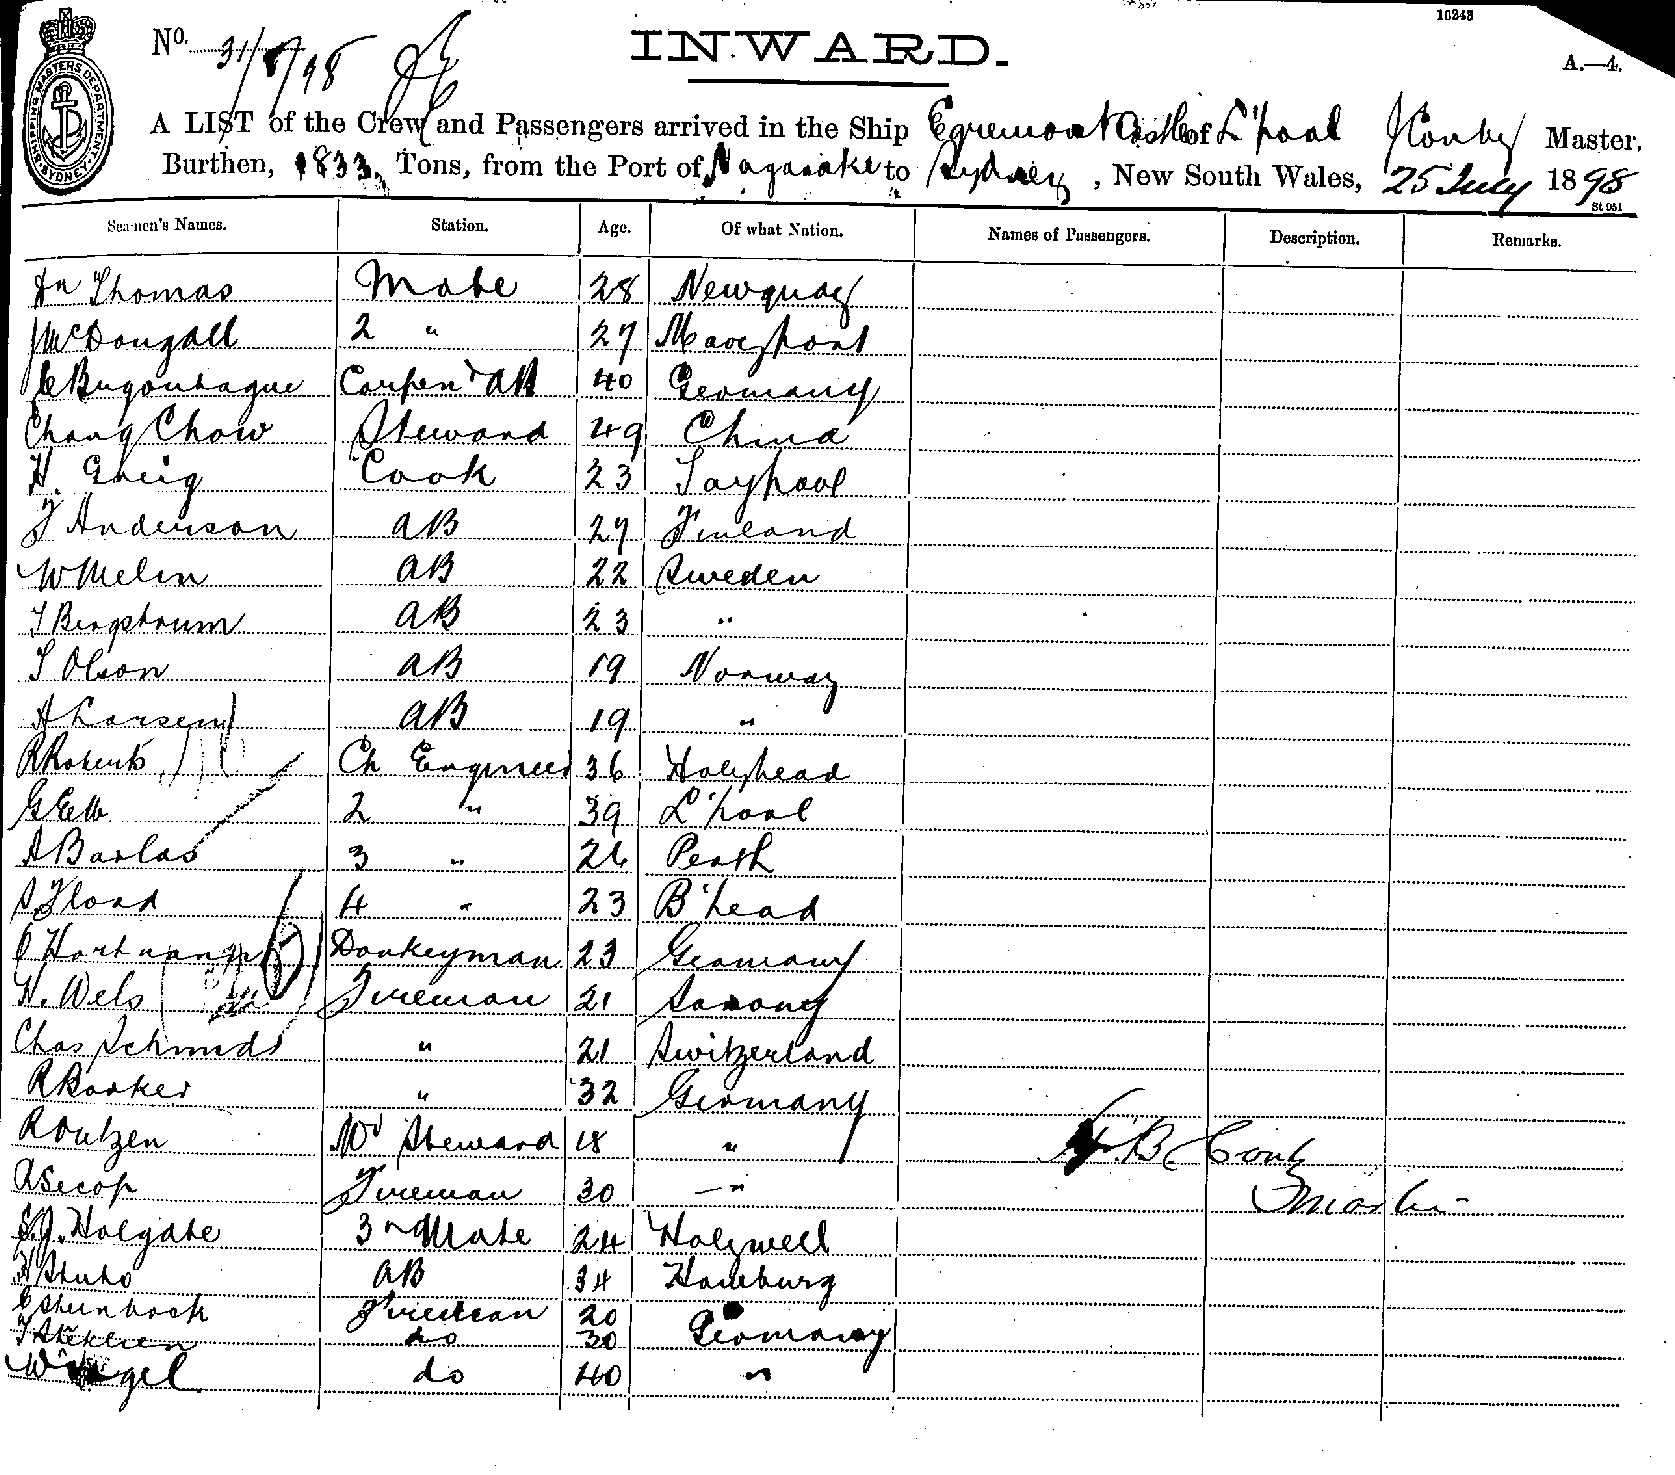 10243
No. 31/8/98
INWARD.
A.—4.
SHIPPING MASTERS DEPARTMENT SYDNEY
A LIST of the Crew and Passengers arrived in the Ship Egremont Castle of L'pool J Conby Master,
Burthen, 1833 Tons, from the Port of Nagasake to Sydney, New South Wales, 25 July 1898
St 051
Seamen's Names. Station. Age. Of what Nation. Names of Passengers. Description. Remarks.
Jn Thomas Mate 28 Newquay
J McDougall 2 " 27 Maryport
Carpenr AB 40 Germany
Chong Chow Steward 49 China
H. Greig Cook 23 Tayport
J Anderson AB 27 Finland
W Melin AB 22 Sweden
T Bergstrum AB 23 "
T Olson AB 19 Norway
A Larsen AB 19 "
R Roberts Ch Engineer 36 Holyhead
G 2 " 39 L'pool
A Barlas 3 " 26 Perth
S Flood 4 " 23 B'head
C Hartmann Donkeyman 23 Germany
H. Wels Fireman 21 Saxony
Chas Schmidt " 21 Switzerland
R Booker " 32 Germany
R Outzen Steward 18 "
A Secop Fireman 30 — "
S.J. Holgate 3rd Mate 24 Holywell
AB 34 Hamburg
C Steinbock Fireman 20
do 30 Germany
do 40 "